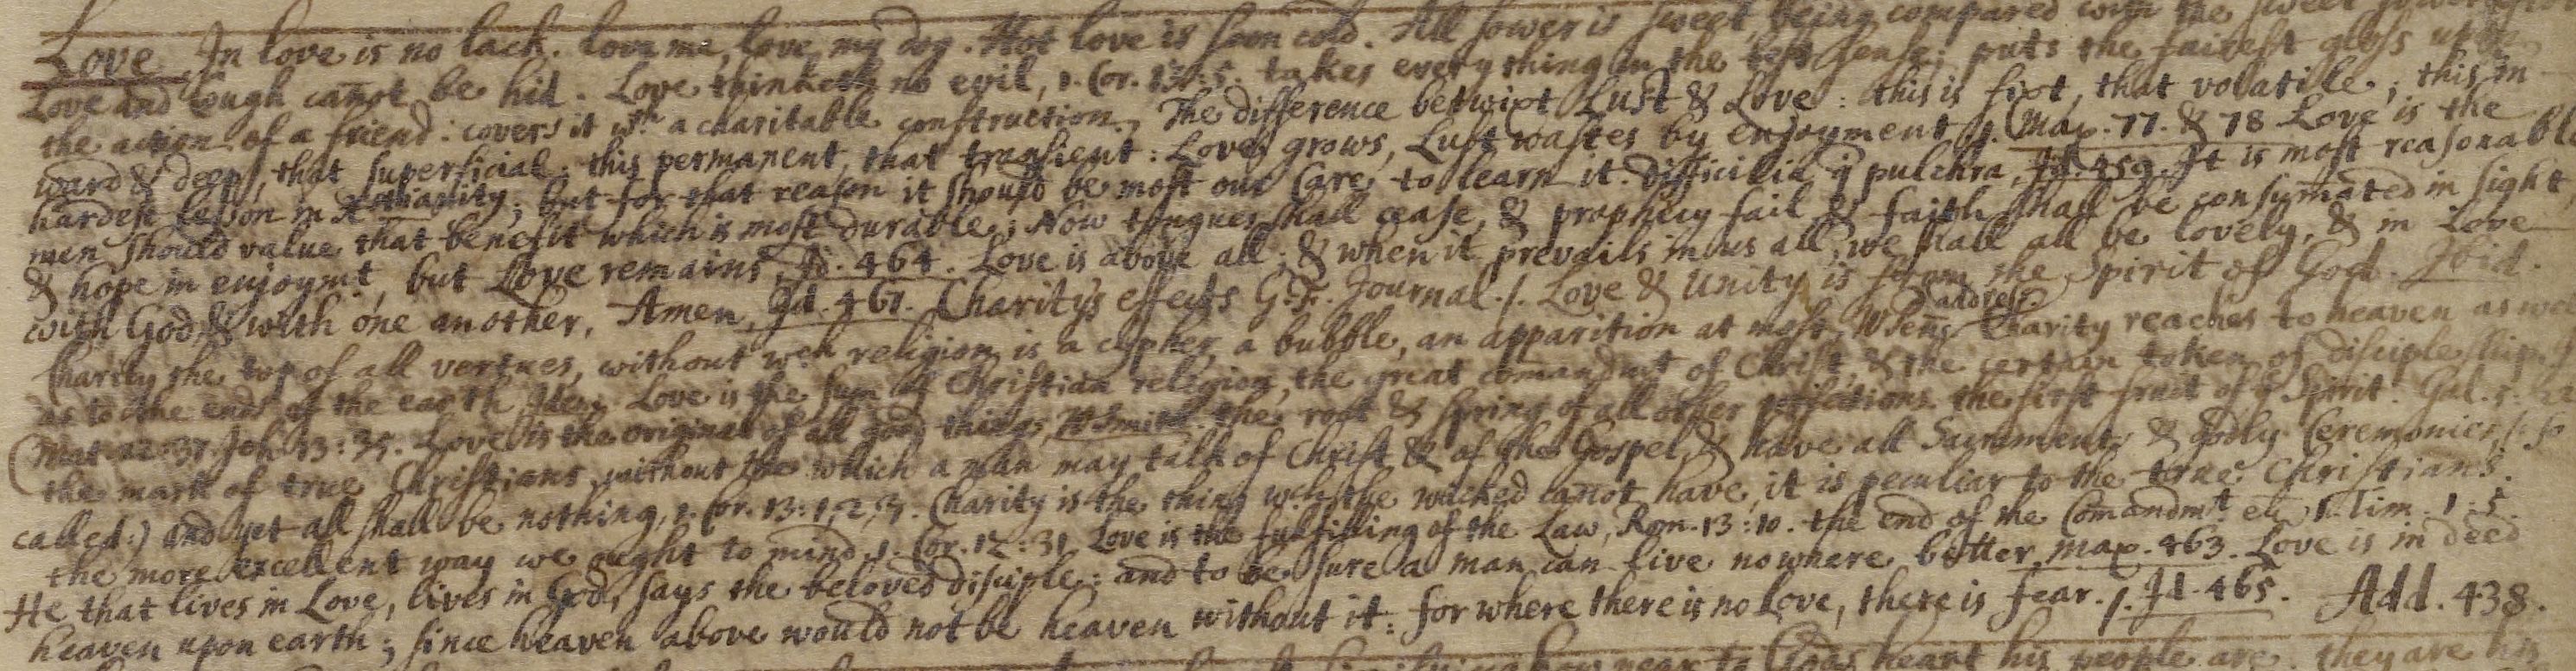 Love. In love is no lack. Love me, love my dog. Hot love is soon cold. All sower is sweet, being compared with the sweet
Love and Cough cañot be hid. Love thinketh no evil, 1. Cor. 13:5. takes every thing in the best sense; puts the fairest gloss upon
the action of a friend: covers it wth a charitable construction. The difference betwixt Lust & Love: this is fixt, that volatile; this in
ward & deep, that superficial; this permanent, that transient: Love grows, Lust wastes by enjoyment /. Max. 77. & 78 Love is the
hardest lesson in Xtianity; but for that reason it should be most our Care to learn it. difficilia q̃ pulchra, Id. 459. It is most reasonable
men should value that benefit which is most durable; Now tongues shall cease, & prophecy fail & faith shall be consum̃ated in sight
& hope in enjoymt, but Love remains, Id. 464. Love is above all; & when it prevails in us all, we shall all be lovely, & in Love
with God, & with one another, Amen, Id. 467. Charity's effects G. F. Journal./. Love & Unity is from the Spirit of God. Ibid.
Charity the top of all vertues, without wch religion is a cypher, a bubble, an apparition at most, W Penns address. Charity reaches to heaven as
as to the ends of the earth Idem. Love is the sum of Christian religion, the great com̃andmt of Christ, & the certain token of discipleship.
(Mat. 22:37. Joh. 13:35. Love is the original of all good things, W Smith. the root & spring of all other the first fruit of ye Spirit. Gal. 5:
the mark of true Christians, without the which a man may talk of Christ & of the Gospel, & have all Sacraments & godly Ceremonies, (:so
called:) and yet all shall be nothing, 1. Cor. 13:1,2,3. Charity is the thing wch the wicked cañot have, it is peculiar to the true Christians.
the more excellent way we ought to mind, 1. Cor. 12:31. Love is the fulfilling of the Law, Rom. 13:10. the end of the Com̃andmt etc̃ 1. Tim. 1:5.
He that lives in Love, lives in God, says the beloved disciple: and to be sure a man can live nowhere better, max. 463. Love is in deed
heaven upon earth; since heaven above would not be heaven without it: for where there is no Love, there is fear. /. Id. 465. Add. 438.
near to Gods heart his people are. they are his